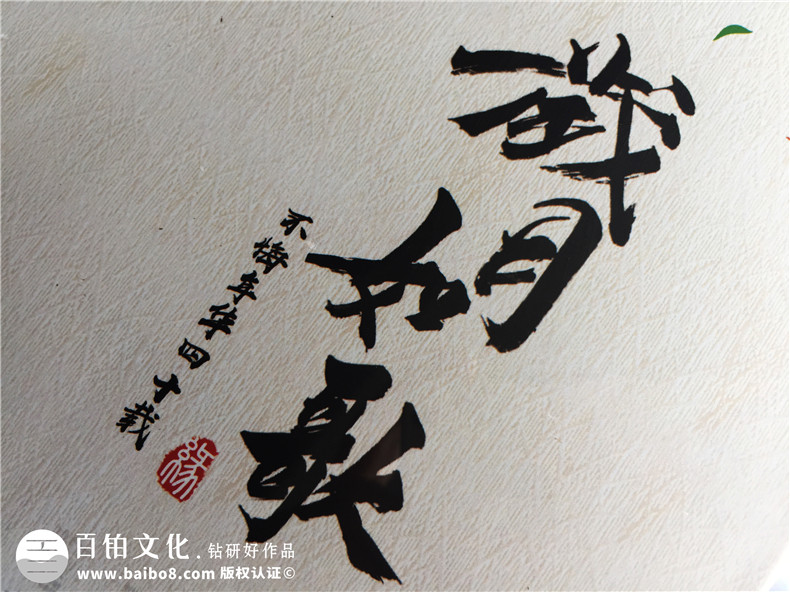 歲月如歌
不悔年华四十载
缘
百铂文化.钻研好作品
www.baibo8.com 版权认证©